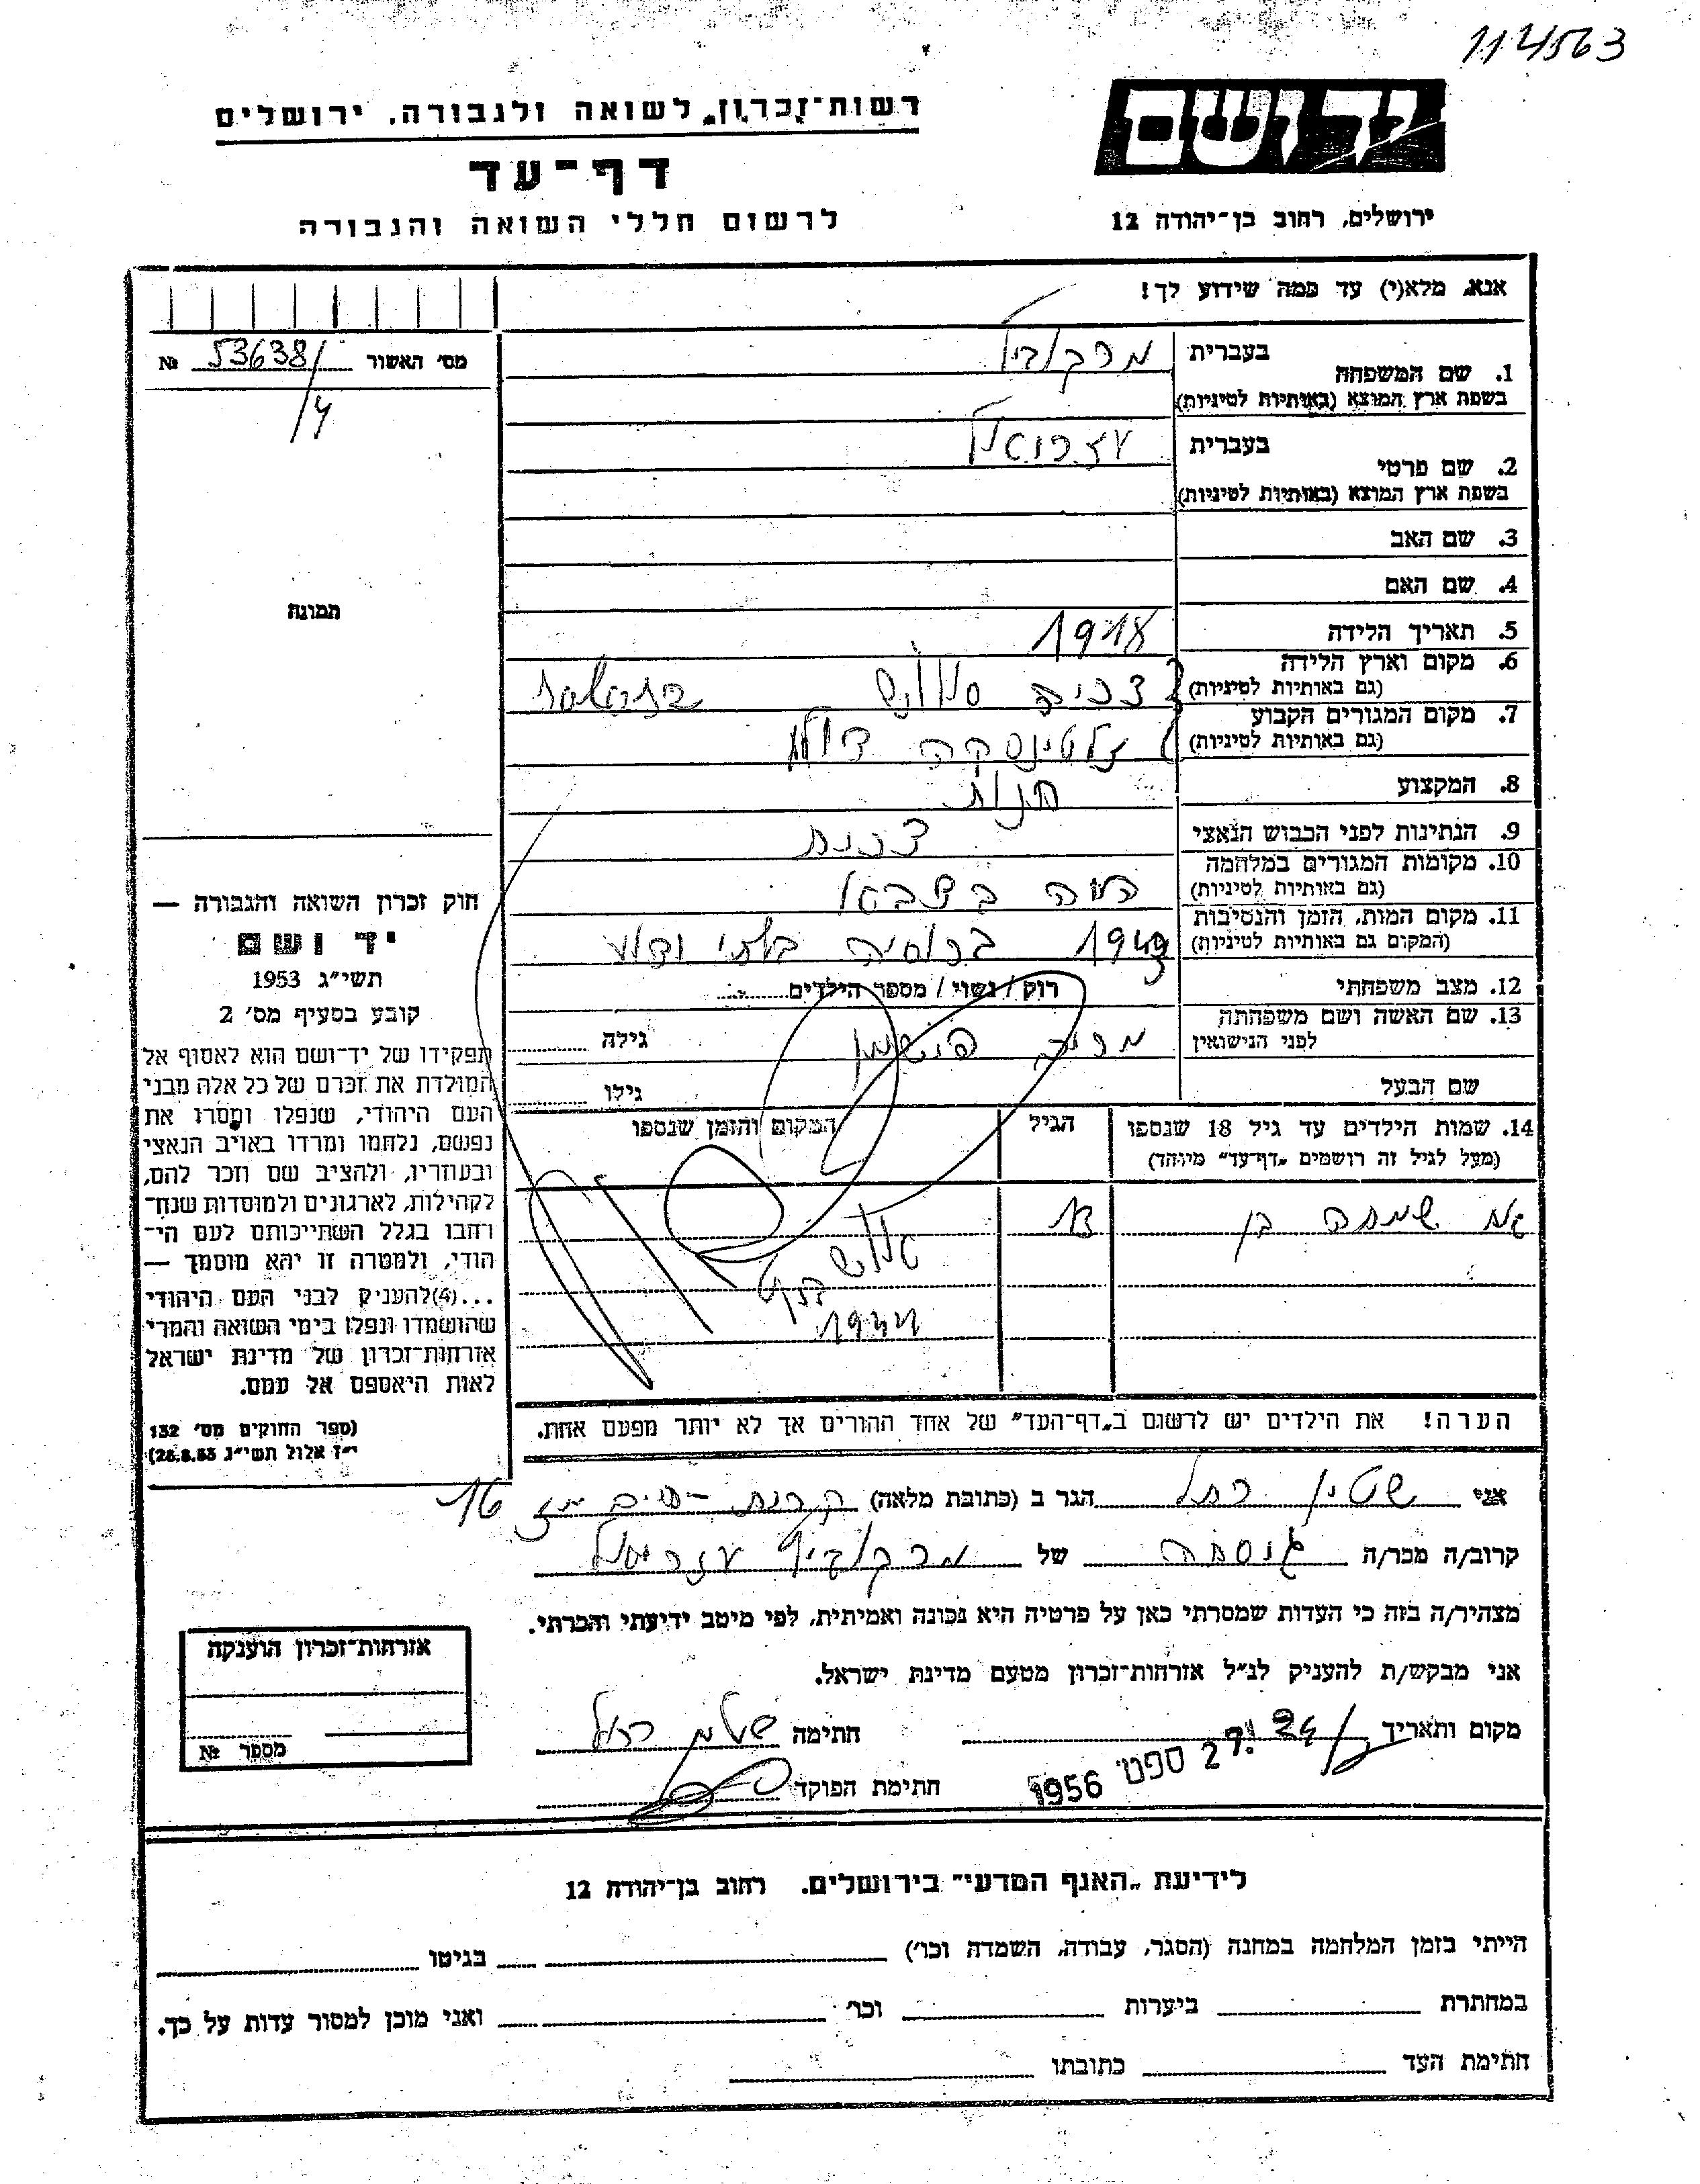 114563
רשות־זכרון לשואה ולגבורה, ירושלים
יד ושם
דף־עד
לרשום חללי השואה והגבורה
ירושלים, רחוב בן־יהודה 12
אנא, מלא(י) עד כמה שידוע לך!
מס׳ האשור 53638/ №
/4
1. שם המשפחה
בעברית מרקוביץ
בשפת ארץ המוצא (באותיות לטיניות)
2. שם פרטי
בעברית עזריאל
בשפת ארץ המוצא (באותיות לטיניות)
3. שם האב
4. שם האם
תמונה
5. תאריך הלידה 1918
6. מקום וארץ הלידה
(גם באותיות לטיניות)
7. מקום המגורים הקבוע
(גם באותיות לטיניות)
8. המקצוע חנות
9. הנתינות לפני הכבוש הנאצי צכית
10. מקומות המגורים במלחמה
(גם באותיות לטיניות) היה בצבא
11. מקום המות, הזמן והנסיבות
(המקום גם באותיות לטיניות) 1943 ברוסיה בלתי ידוע
12. מצב משפחתי רוק / נשוי / מספר הילדים
13. שם האשה ושם משפחתה
לפני הנישואין פישמן גילה
שם הבעל גילו
14. שמות הילדים עד גיל 18 שנספו הגיל המקום והזמן שנספו
(מעל לגיל זה רושמים „דף־עד״ מיוחד)
שמחה בן
1944
חוק זכרון השואה והגבורה —
יד ושם
תשי״ג 1953
קובע בסעיף מס׳ 2
תפקידו של יד־ושם הוא לאסוף אל
המולדת את זכרם של כל אלה מבני
העם היהודי, שנפלו ומסרו את
נפשם, נלחמו ומרדו באויב הנאצי
ובעוזריו, ולהציב שם וזכר להם,
לקהילות, לארגונים ולמוסדות שנח־
רבו בגלל השתייכותם לעם הי־
הודי, ולמטרה זו יהא מוסמך —
...(4) להעניק לבני העם היהודי
שהושמדו ונפלו בימי השואה והמרי
אזרחות־זכרון של מדינת ישראל
לאות היאספם אל עמם.
(ספר החוקים מס׳ 132
י״ז אלול תשי״ג 28.8.53)
הערה! את הילדים יש לרשום ב„דף־העד״ של אחד ההורים אך לא יותר מפעם אחת.
אני שטין רחל הגר ב (כתובת מלאה) קרית חיים 16
קרוב/ה מכר/ה גיסתה של מרקוביץ עזריאל
מצהיר/ה בזה כי העדות שמסרתי כאן על פרטיה היא נכונה ואמיתית, לפי מיטב ידיעתי והכרתי.
אני מבקש/ת להעניק לנ״ל אזרחות־זכרון מטעם מדינת ישראל.
מקום ותאריך 27 ספט׳ 1956 חתימה שטין רחל
חתימת הפוקד
אזרחות־זכרון הוענקה
מספר №
לידיעת „האגף המדעי״ בירושלים. רחוב בן־יהודה 12
הייתי בזמן המלחמה במחנה (הסגר, עבודה, השמדה וכו׳) בגיטו
במחתרת ביערות וכו׳ ואני מוכן למסור עדות על כך.
חתימת העד כתובתו